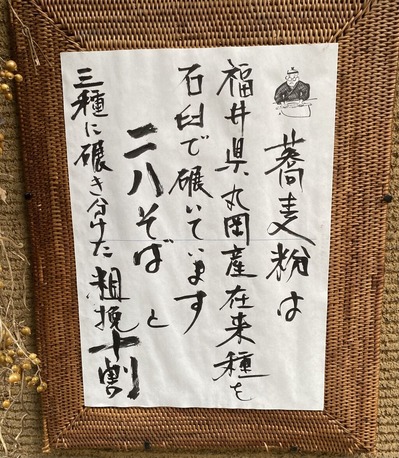 蕎麦粉は
福井県丸岡産在来種を
石臼で碾いています
二八そばと
三種に碾き分けた粗挽十割